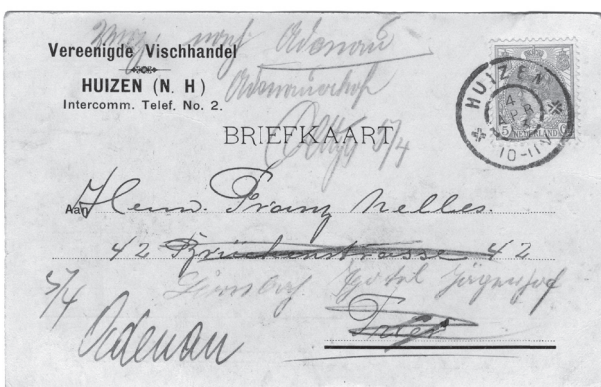 nach Adenau
Vereenigde Vischhandel
HUIZEN (N. H)
Intercomm. Telef. No. 2.
Adenauerhof
HUIZEN
4
APR
10-11V
5 NEDERLAND
BRIEFKAART
5/4
Aan Herrn. Franz Nelles.
42 Brückenstrasse 42
Hotel Jägerhof
5/4
Trier
Adenau